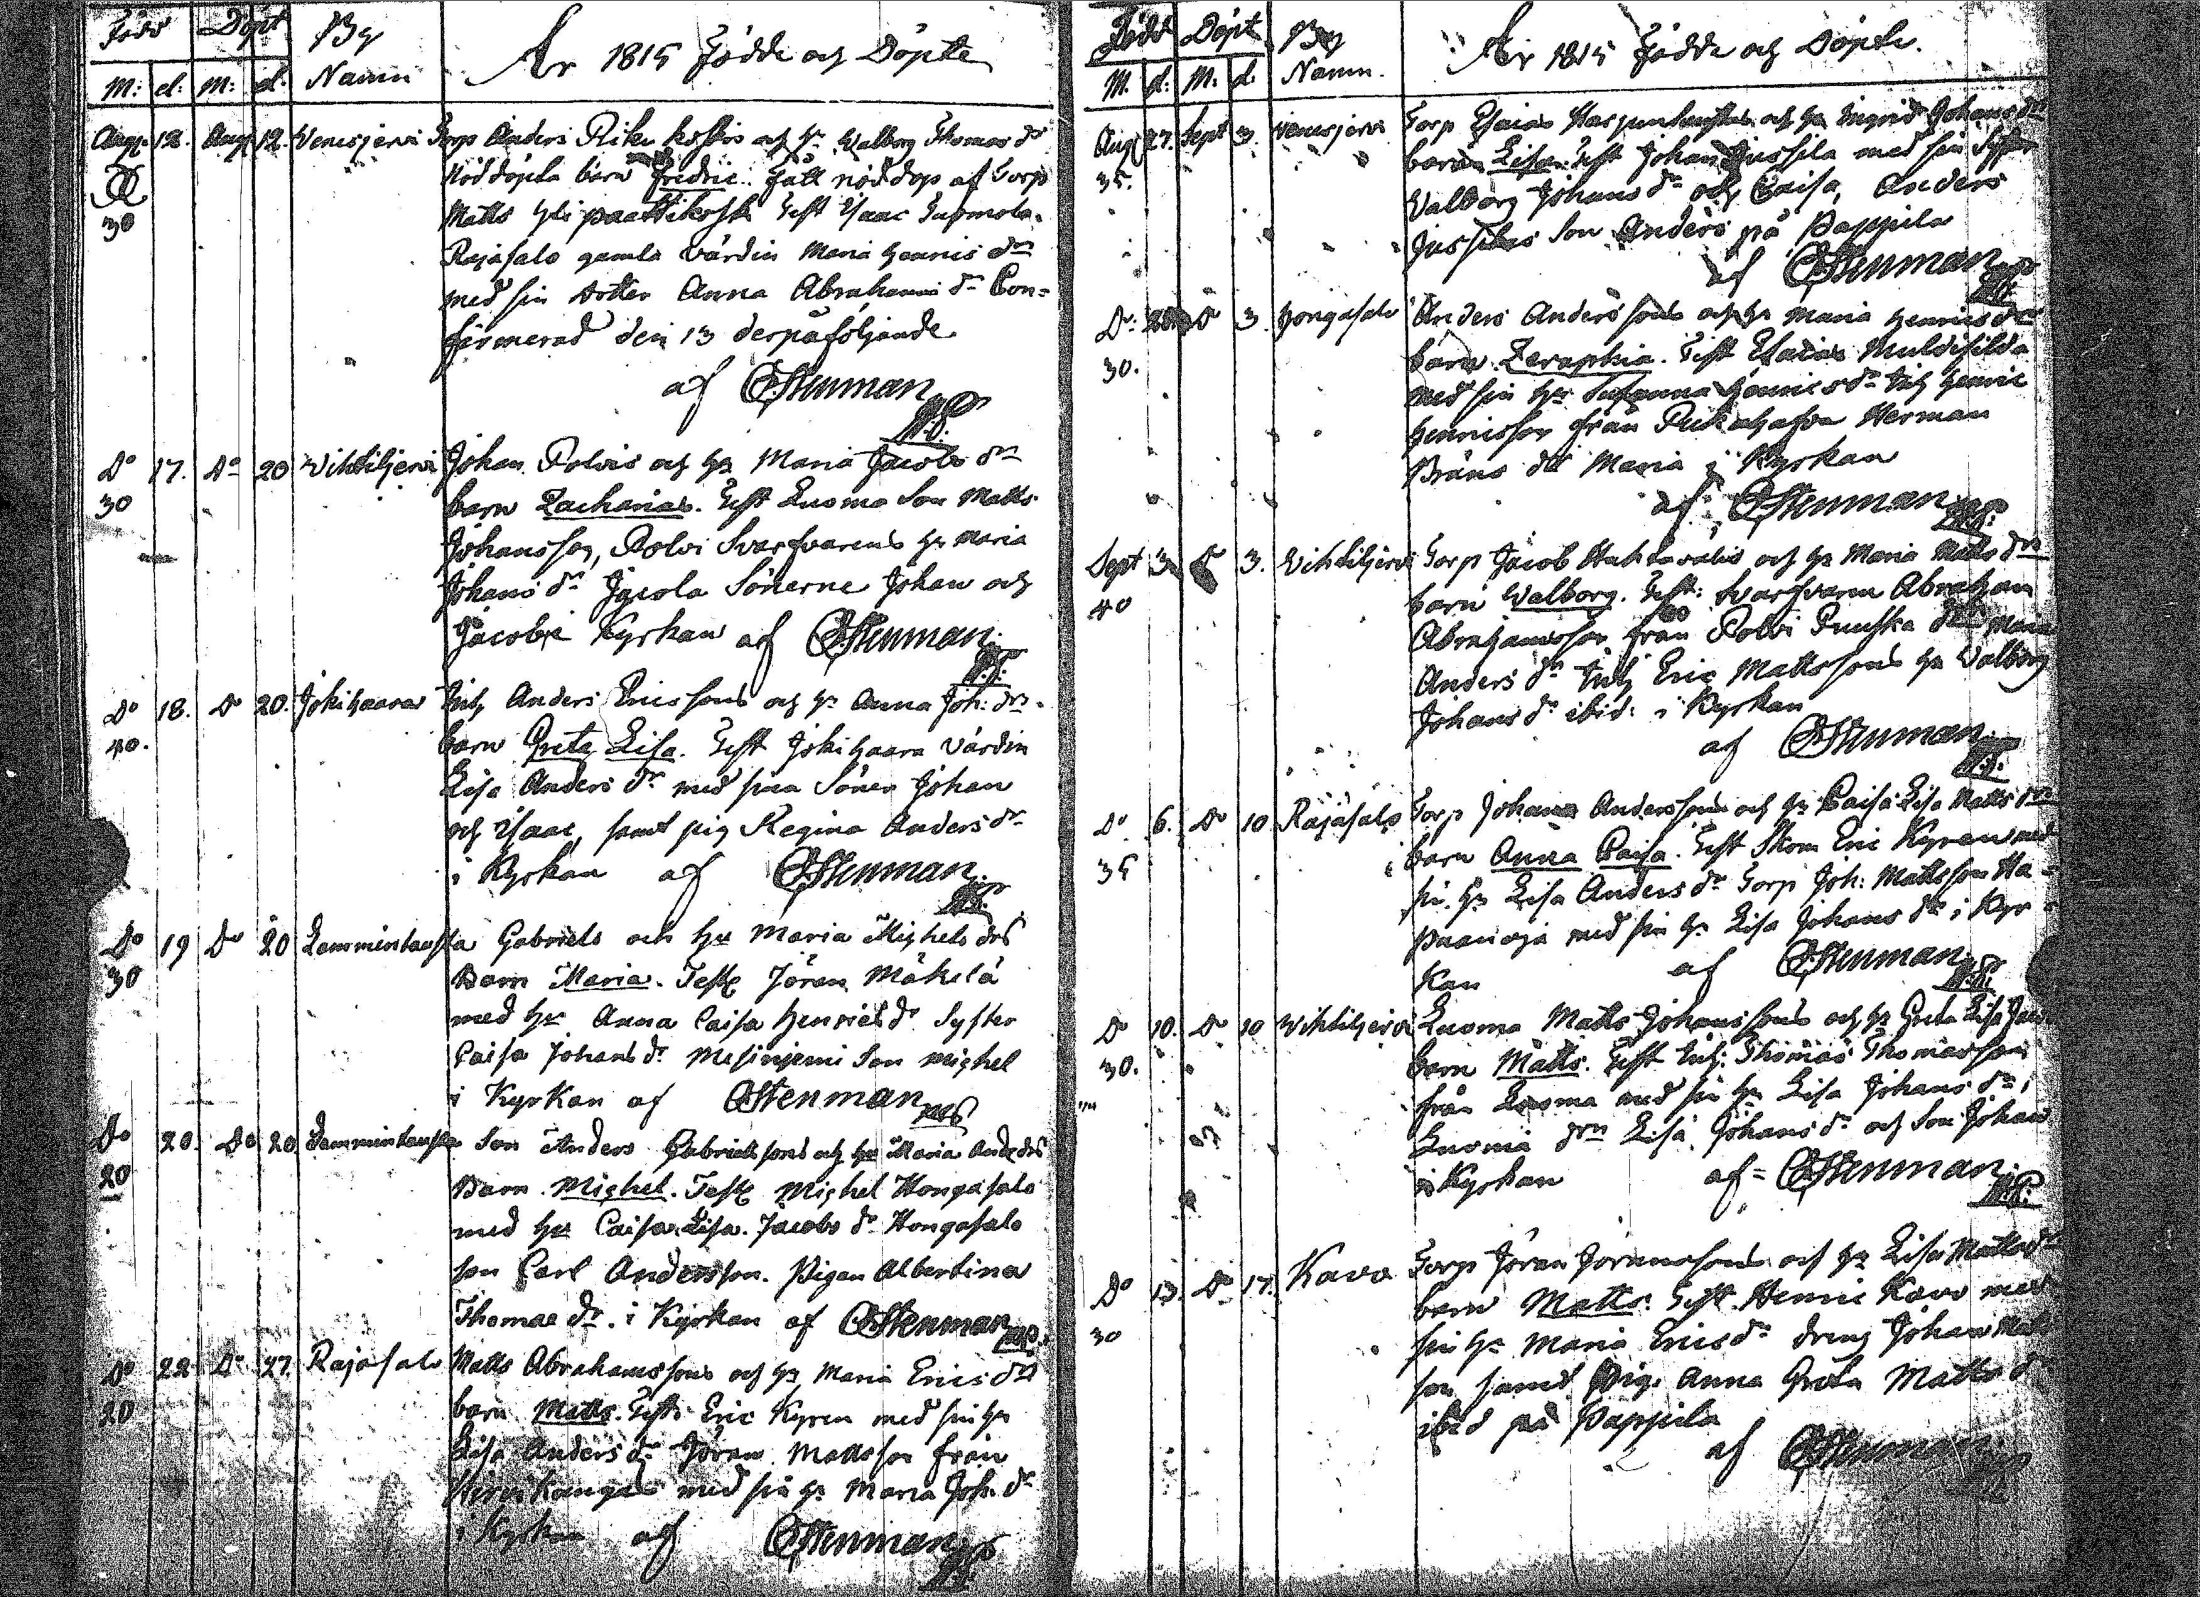 Född Döpt By
M: d: M: d: Namn
År 1815 Födde och Döpte
Aug. 12. Aug 12. Wenesjervi Torp Anders Riku koskis och h:u Walborg Thomas dr
30
Nöddöpta barn Fredric. Fått nöddop af Torp
Matts Yli paattikoski Test Isaac Tuomola.
Rajasalo gamla Värdin Maria Henrics dr
med sin dotter Anna Abrahams dr Con=
firmerad den 13 derpåföljande
af CStenman
Do 17. Do 20 Wihtiljervi Johan Polvis och h:u Maria Jacobs dr
30
barn Zacharias. Test Luoma Son Matts
Johansson, Polvi Svarfvarens h:u Maria
Johans dr Sönerne Johan och
Jacob i Kyrkan af CStenman
Do 18. Do 20. Jokihaara Inh Anders Ericssons och h:u Anna Joh: dr
40.
barn Greta Lisa. Test Jokihaara Värdin
Lisa Anders dr med sina Söner Johan
och Isaac, samt pig Regina Anders dr
i Kyrkan af CStenman
Do 19 Do 20 Lamminkauska Gabriels och h:u Maria Mighels dr
30
Barn Maria. Test Jöran Mäkelä
med h:u Anna Caisa Henrics dr Syster
Caisa Johans dr Mesiniemi Son Mighel
i Kyrkan af CStenman
Do 20. Do 20 Lamminkauska Son Anders Gabrielssons och h:u Maria And: dr
20
Barn Mighel. Test Mighel Hongasalo
med h:u Caisa Lisa Jacobs dr Hongasalo
son Carl Andersson. Pigan Albertina
Thomae dr i Kyrkan af CStenman
Do 22 Do 27. Rajasalo Matts Abrahamssons och h:u Maria Erics dr
20
barn Matts. Test: Eric Kyren med sin h:u
Lisa Anders dr Jöran Mattsson från
Hirvikangas med sin h:u Maria Joh. dr
i Kyrkan af CStenman
Född Döpt By
M. d: M. d. Namn.
År 1815 Födde och Döpte.
Aug 27. Sept 3. Wenesjervi Torp Esaias och h:u Ingrid Johans dr
35.
barn Lisa. Test Johan Jussila med sin Syster
Walborg Johans dr och Caisa, Anders
Jussilas Son Anders på Pappila
af CStenman
Do: Do 3. Hongasalo Anders Anderssons och h:u Maria Henrics dr
30.
barn Zeraphia. Test Esaias
med sin h:u Susanna Henrics dr Inh Henric
Henricsson från Herman
Bräns dr Maria i Kyrkan
af CStenman
Sept 3 Do 3. Wihtiljervi Torp Jacob Huhtavalis och h:u Maria Matts dr
40
barn Walborg. Test: Svarfvaren Abraham
Abrahamsson från Polvi dr Maria
Anders dr Inh Eric Mattssons h:u Walborg
Johans dr ibid: i Kyrkan
af CStenman
Do 6. Do 10 Rajasalo Torp Johan Anderssons och h:u Caisa Lisa Matts dr
35
barn Anna Caisa. Test Eric Kyren med
sin h:u Lisa Anders dr Torp Joh: Mattsson Ha=
paanoja med sin h:u Lisa Johans dr i Kyr=
kan af CStenman
Do 10. Do 10 Wihtiljervi Luoma Matts Johanssons och h:u Greta Lisa
30.
barn Matts. Test Inh: Thomas Thomasson
från Luoma med sin h:u Lisa Johans dr,
Luoma drn Lisa Johans dr och Son Johan
i Kyrkan af CStenman
Do 13. Do 17. Kavo Torp Jöran Joranssons och h:u Lisa Matts dr
30
barn Matts. Test Henric Kavo med
sin h:u Maria Erics dr dreng Johan Matts
son samt Pig. Anna Greta Matts dr
ibid på Pappila
af CStenman